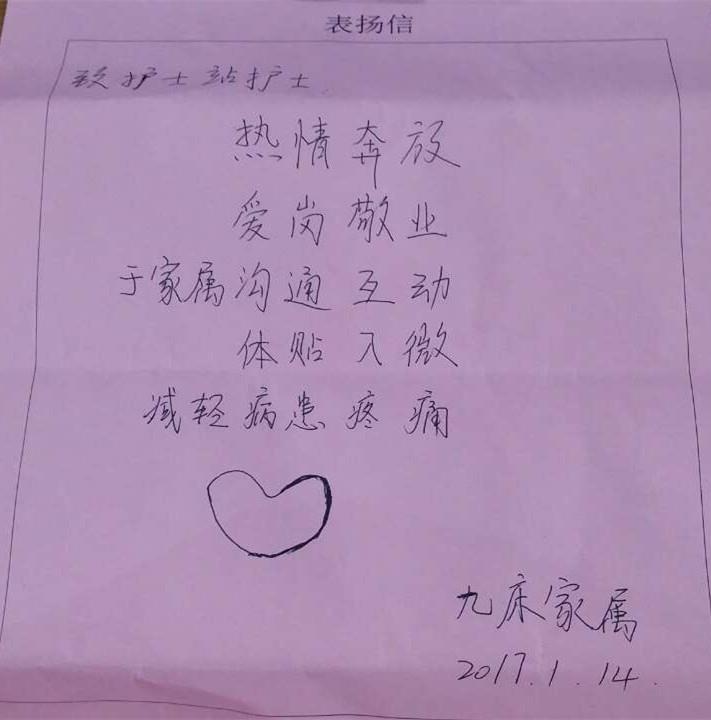 表扬信
致护士站护士
热情奔放
爱岗敬业
于家属沟通互动
体贴入微
减轻病患疼痛
九床家属
2017.1.14.